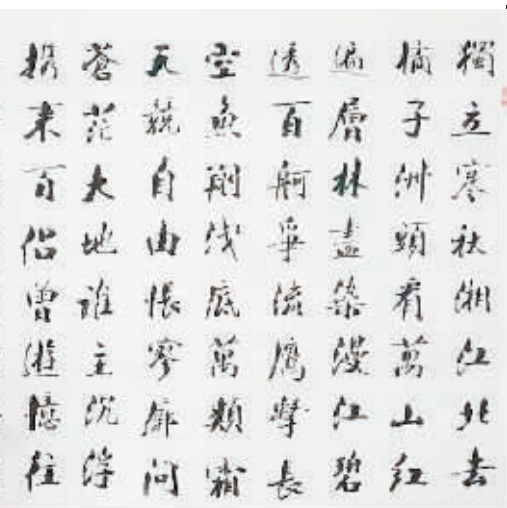 獨立寒秋湘江北去
橘子洲頭看萬山紅
遍層林盡染漫江碧
透百舸爭流鷹擊長
空魚翔浅底萬類霜
天競自由悵寥廓問
蒼茫大地誰主沉浮
携来百侣曾遊憶往